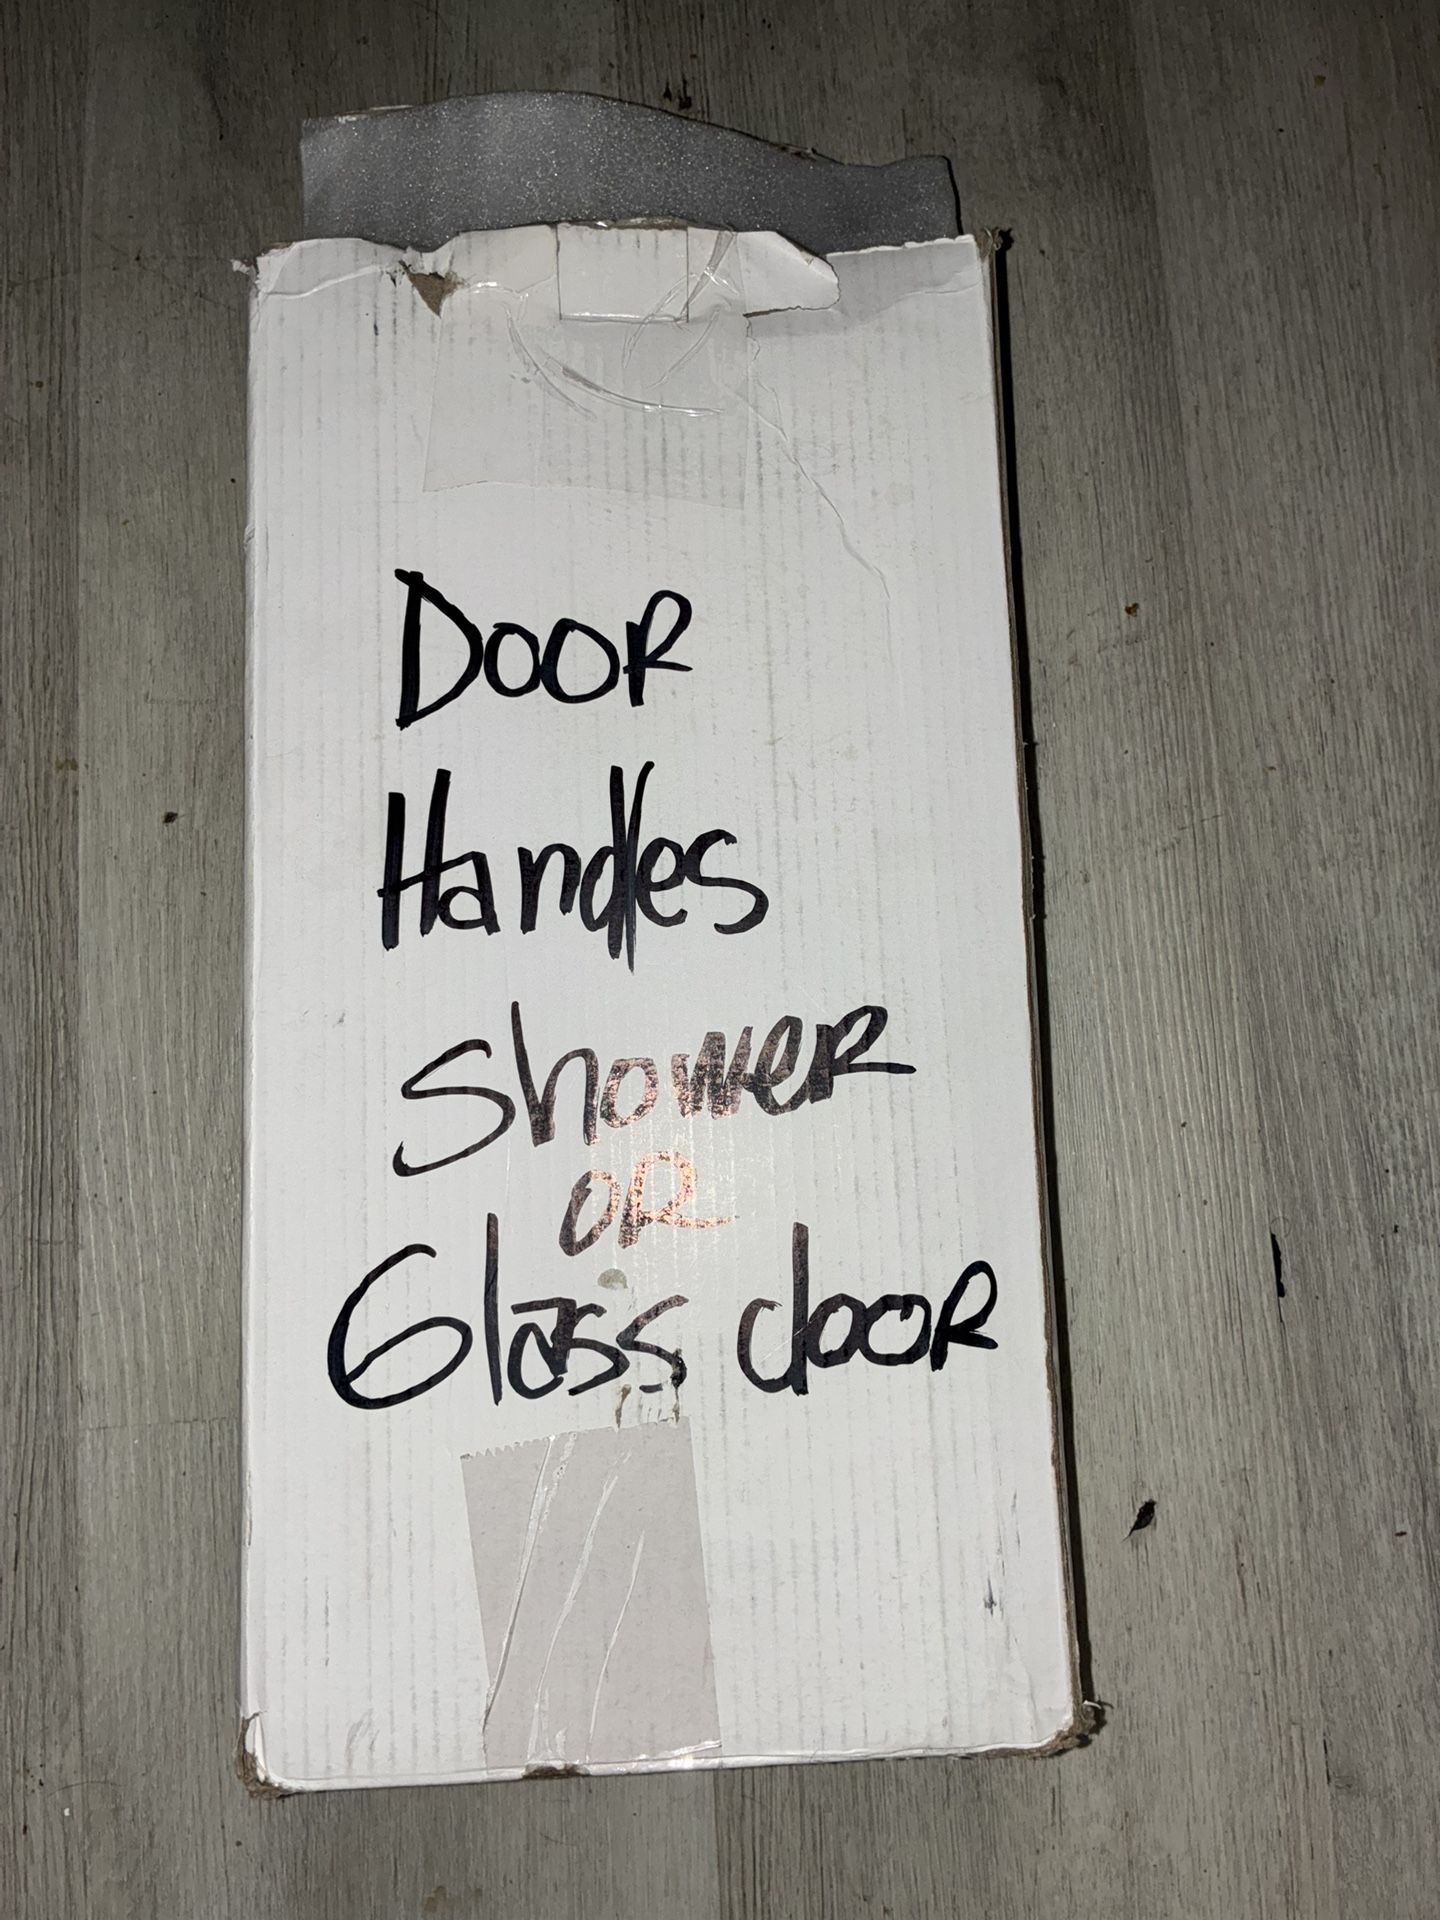 DOOR
Handles
Shower
OR
Glass door